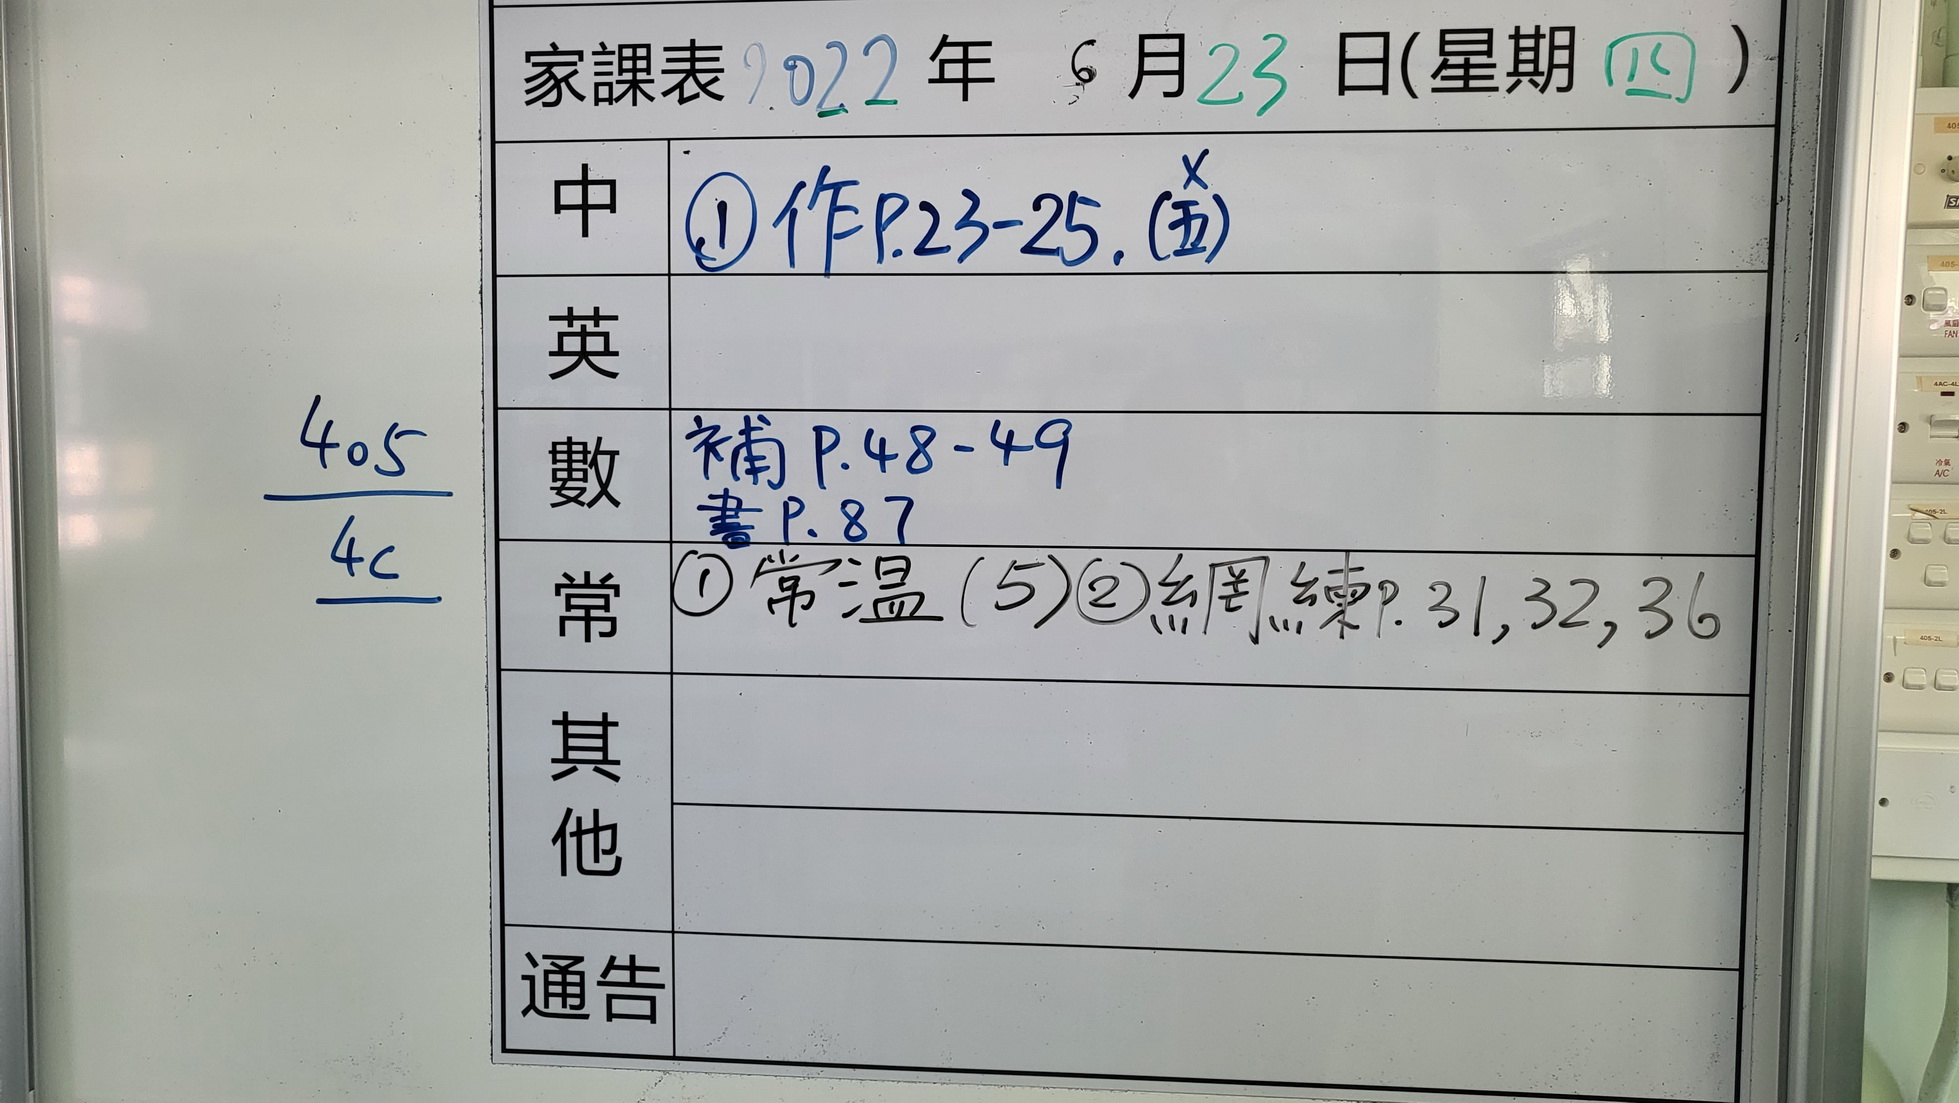 家課表 2022 年 6 月 23 日(星期 四)
中 ① 作P.23-25. (五)
x
英
數 補 P.48-49
書 P.87
常 ① 常温 (5) ② 網練P. 31, 32, 36
其他
通告
405
4C
405
風扇
FAN
4AC-4L
冷氣
A/C
405-2L
405-2L